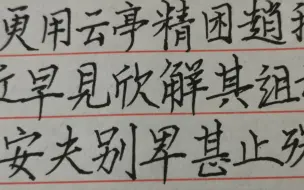 更用云亭精困趙
早見欣解其詛
安夫别卑甚止